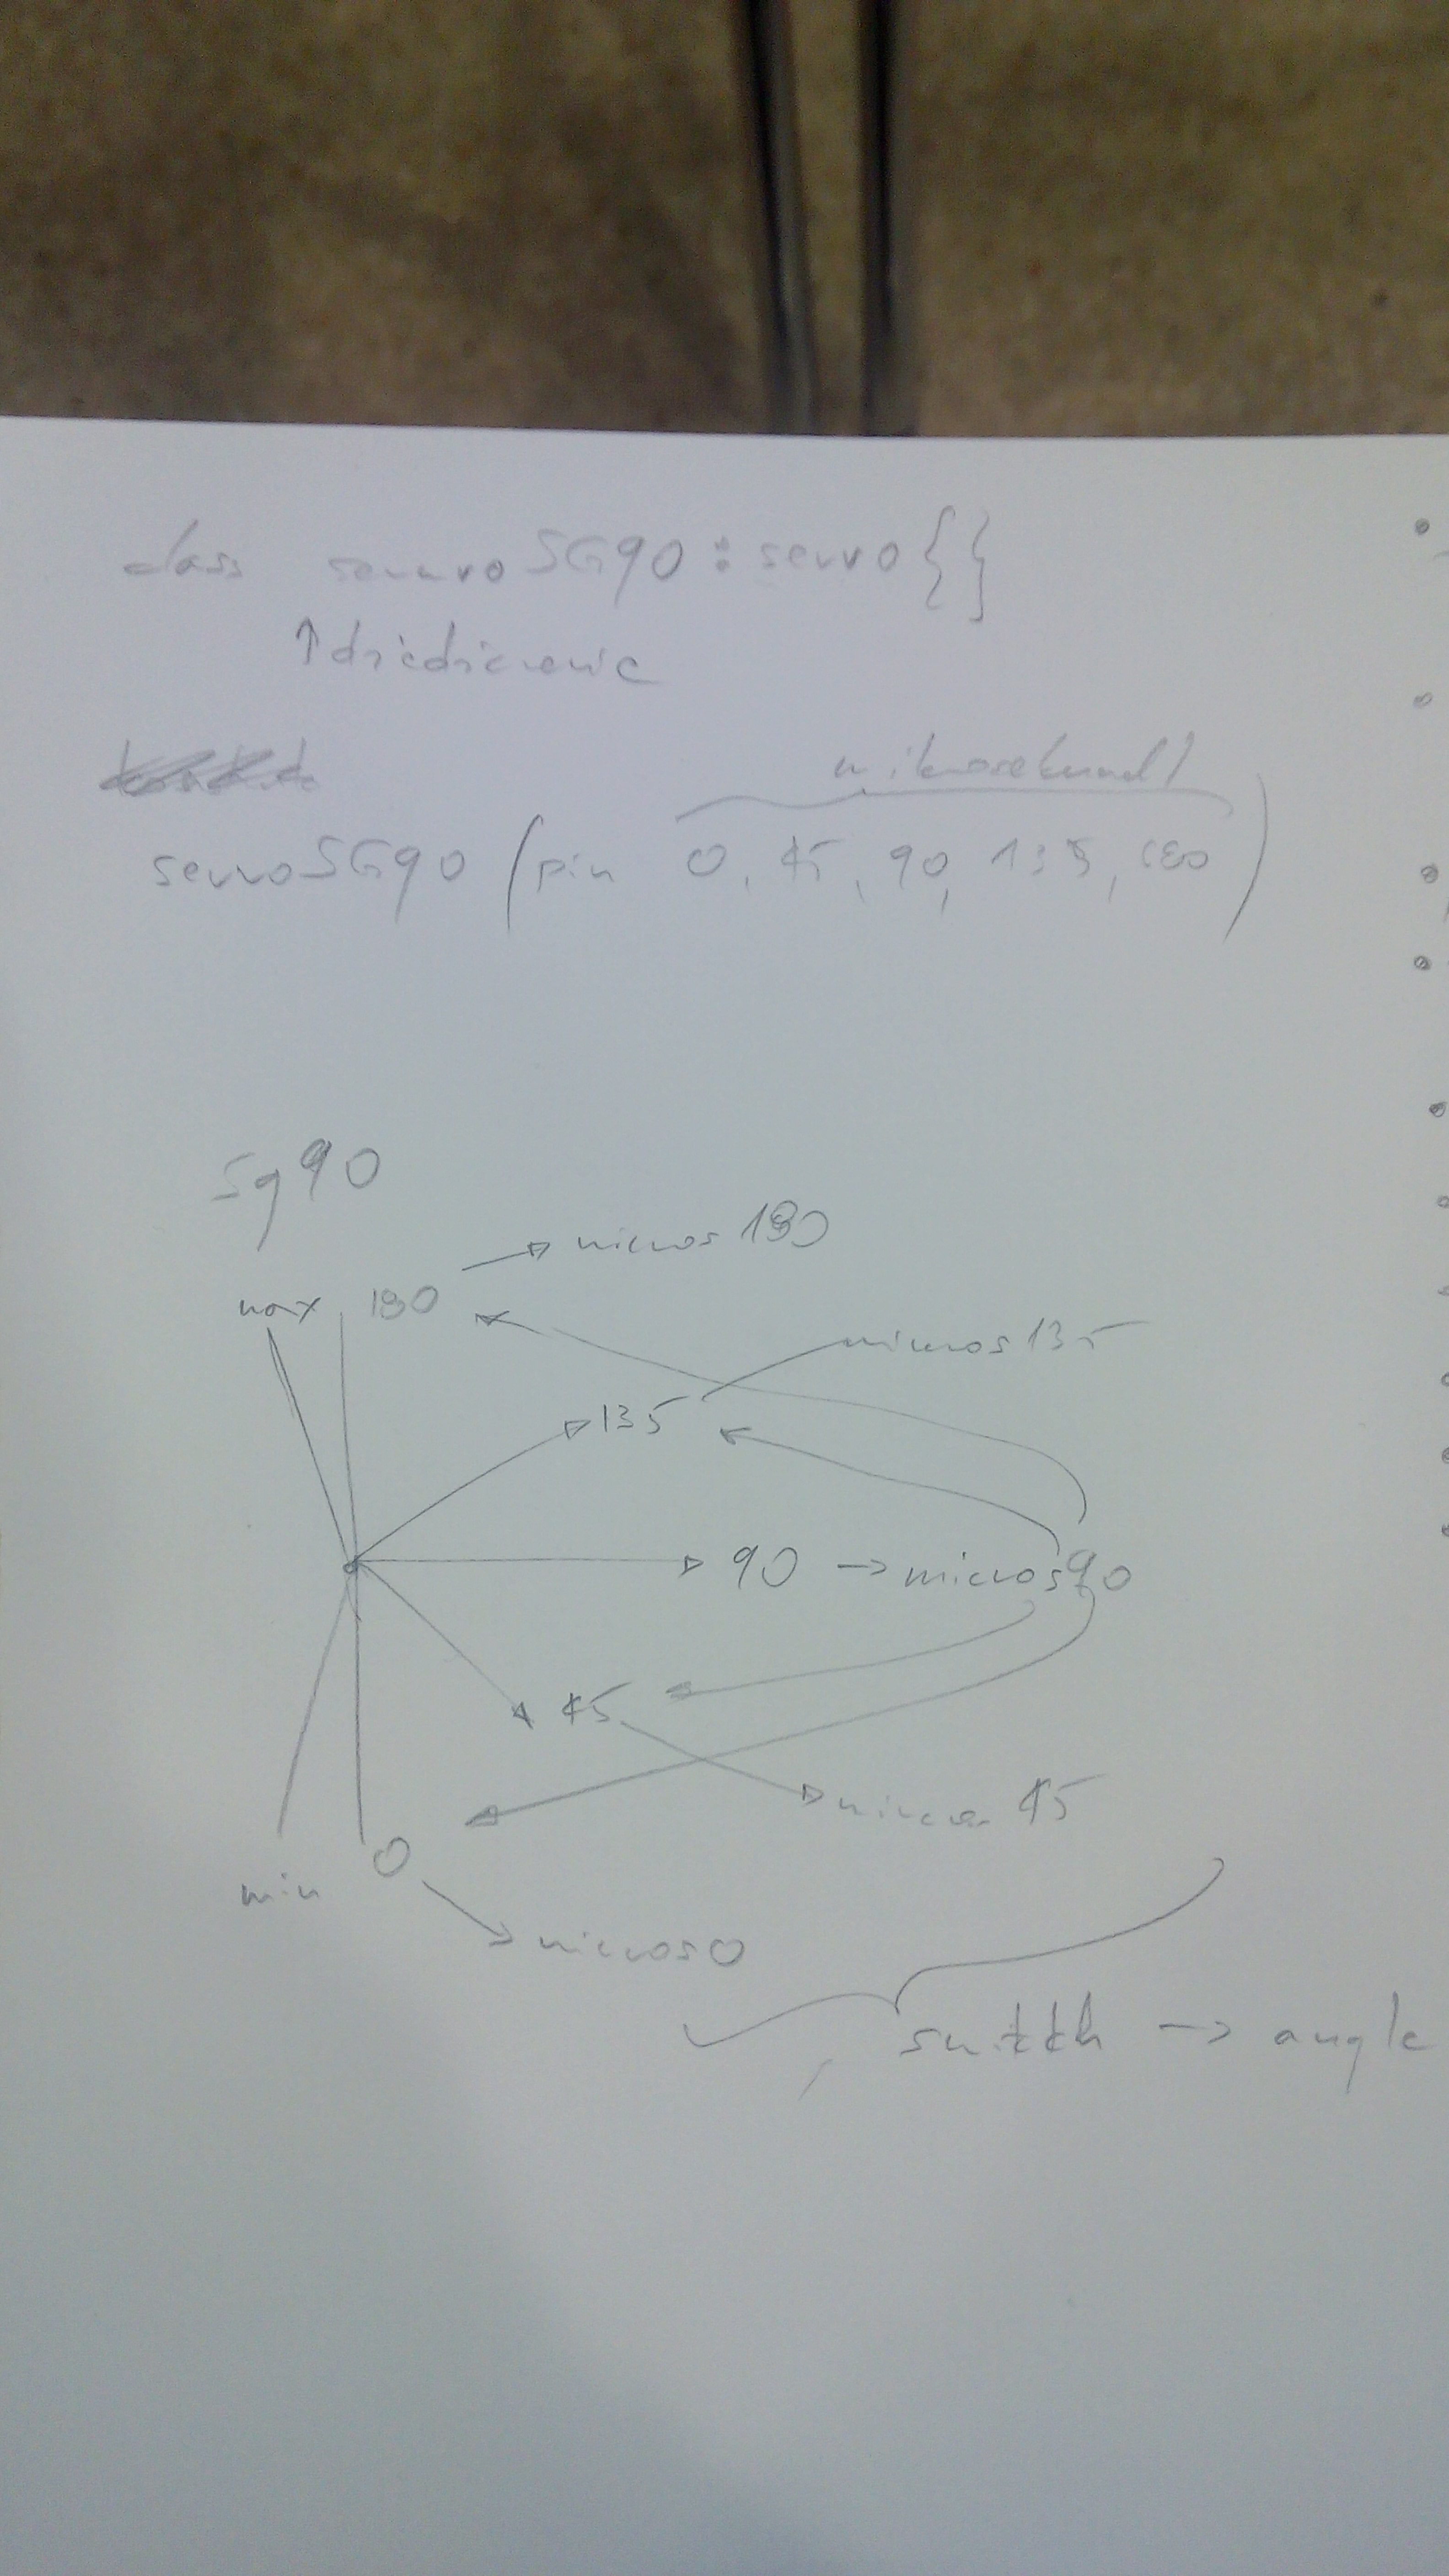 class servvoSG90 : servo {}
↑ dziedziczenie
mikrosekundy
servoSG90 (pin 0, 45, 90, 135, 180)
sg90
→ micros 180
max 180
micros 135
135
90 → micros90
45
micros 45
0
min
micros0
switch → angle